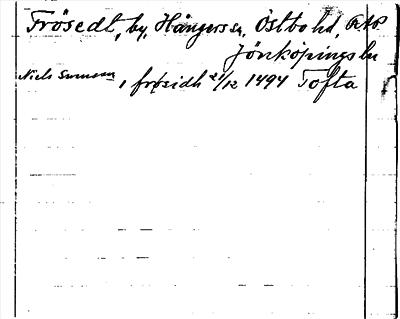 Frösedt, by, Hångers sn, Östbo hd,
Jönköpings län
Niels Swensson, i frøsidh 21/12 1494 Tofta